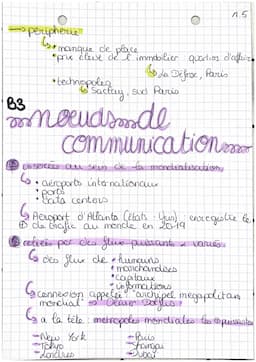 n.5
→ périphérie
• manque de place
• prix élevé de l'immobilier quartiers d'affaires
La Défense, Paris
• technopoles
Saclay, sud Paris
B3
nœuds de
communication
① insérés au sein de la mondialisation
• aéroports internationaux
• ports
• data centers
Aéroport d'Atlanta (États-Unis) : enregistre le
⊕ de trafic au monde en 2019
② reliés par des flux puissants et variés
des flux de • humains
• marchandises
• capitaux
• informations
connexion appelée "archipel mégapolitain
mondial"
à la tête métropoles mondiales les + puissantes
- New York - Paris
- Tokyo - Shangai
- Londres - Dubaï